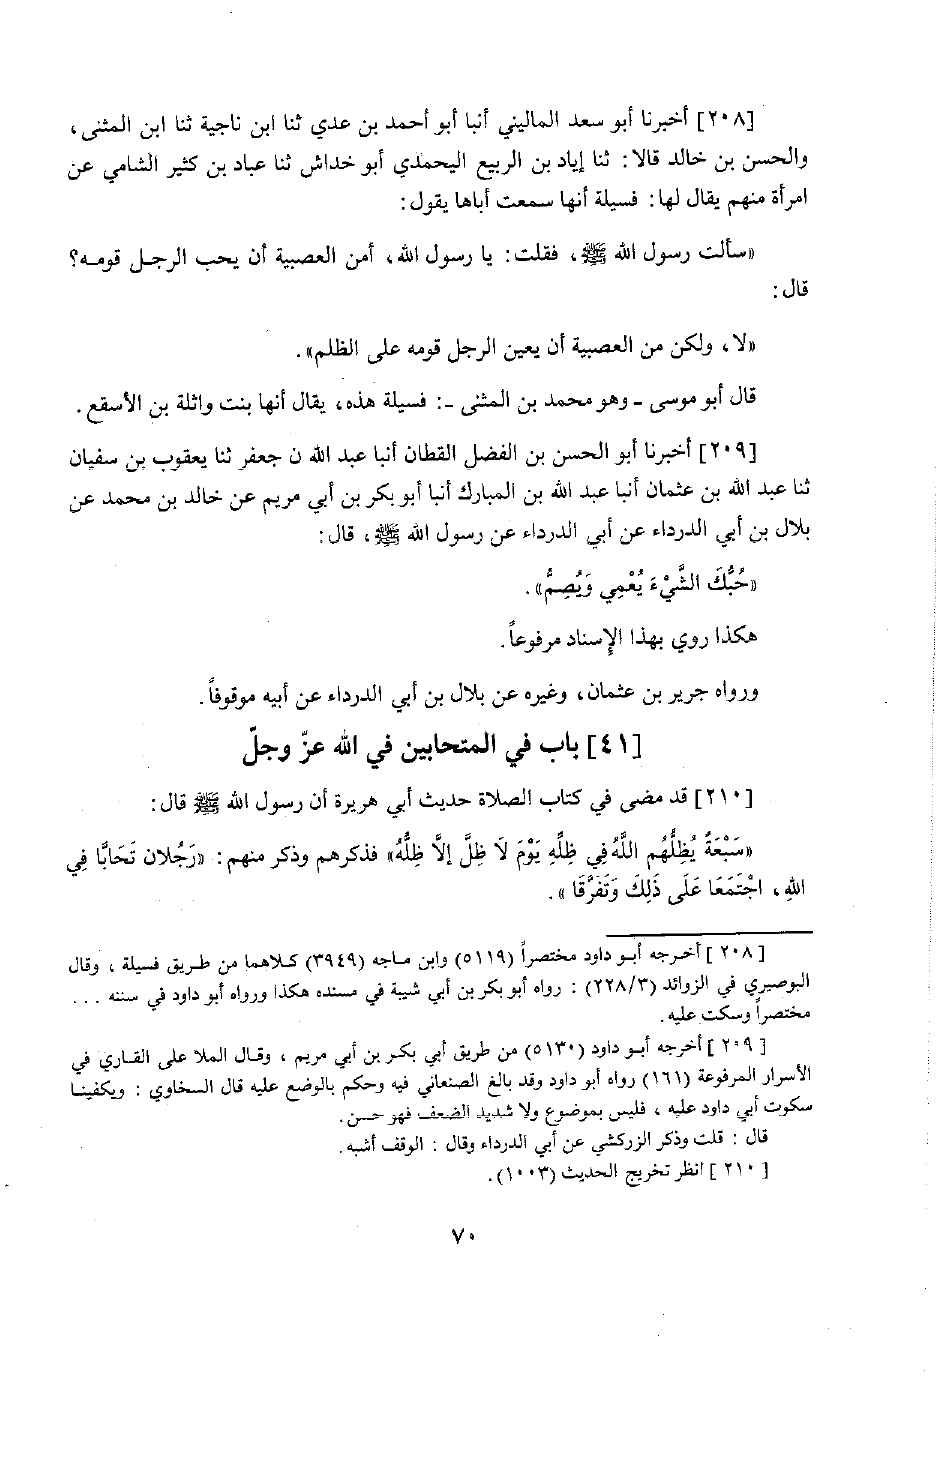 [٢٠٨] أخبرنا أبو سعد الماليني أنبا أبو أحمد بن عدي ثنا ابن ناجية ثنا ابن المثنى،
والحسن بن خالد قالا: ثنا إياد بن الربيع اليحمدي أبو خداش ثنا عباد بن كثير الشامي عن
امرأة منهم يقال لها: فسيلة أنها سمعت أباها يقول:
«سألت رسول الله ﷺ، فقلت: يا رسول الله، أمن العصبية أن يحب الرجل قومه؟
قال:
«لا، ولكن من العصبية أن يعين الرجل قومه على الظلم».
قال أبو موسى ـ وهو محمد بن المثنى ـ: فسيلة هذه، يقال أنها بنت واثلة بن الأسقع.
[٢٠٩] أخبرنا أبو الحسن بن الفضل القطان أنبا عبد الله ن جعفر ثنا يعقوب بن سفيان
ثنا عبد الله بن عثمان أنبا عبد الله بن المبارك أنبا أبو بكر بن أبي مريم عن خالد بن محمد عن
بلال بن أبي الدرداء عن أبي الدرداء عن رسول الله ﷺ، قال:
«حُبُّكَ الشَّيْءَ يُعْمِي وَيُصِمُّ».
هكذا روي بهذا الإسناد مرفوعاً.
ورواه جرير بن عثمان، وغيره عن بلال بن أبي الدرداء عن أبيه موقوفاً.
[٤١] باب في المتحابين في الله عزّ وجلّ
[٢١٠] قد مضى في كتاب الصلاة حديث أبي هريرة أن رسول الله ﷺ قال:
«سَبْعَةٌ يُظِلُّهُم اللَّهُ فِي ظِلِّهِ يَوْمَ لَا ظِلَّ إلَّا ظِلُّهُ» فذكرهم وذكر منهم: «رَجُلان تَحَابَّا فِي
اللهِ، اجْتَمَعَا عَلَى ذَلِكَ وَتَفَرَّقَا».
[٢٠٨] أخرجه أبو داود مختصراً (٥١١٩) وابن ماجه (٣٩٤٩) كلاهما من طريق فسيلة، وقال
البوصيري في الزوائد (٢٢٨/٣): رواه أبو بكر بن أبي شيبة في مسنده هكذا ورواه أبو داود في سننه ...
مختصراً وسكت عليه.
[٢٠٩] أخرجه أبو داود (٥١٣٠) من طريق أبي بكر بن أبي مريم، وقال الملا على القاري في
الأسرار المرفوعة (١٦١) رواه أبو داود وقد بالغ الصنعاني فيه وحكم بالوضع عليه قال السخاوي: ويكفينا
سكوت أبي داود عليه، فليس بموضوع ولا شديد الضعف فهو حسن.
قال: قلت وذكر الزركشي عن أبي الدرداء وقال: الوقف أشبه.
[٢١٠] انظر تخريج الحديث (١٠٠٣).
٧٠